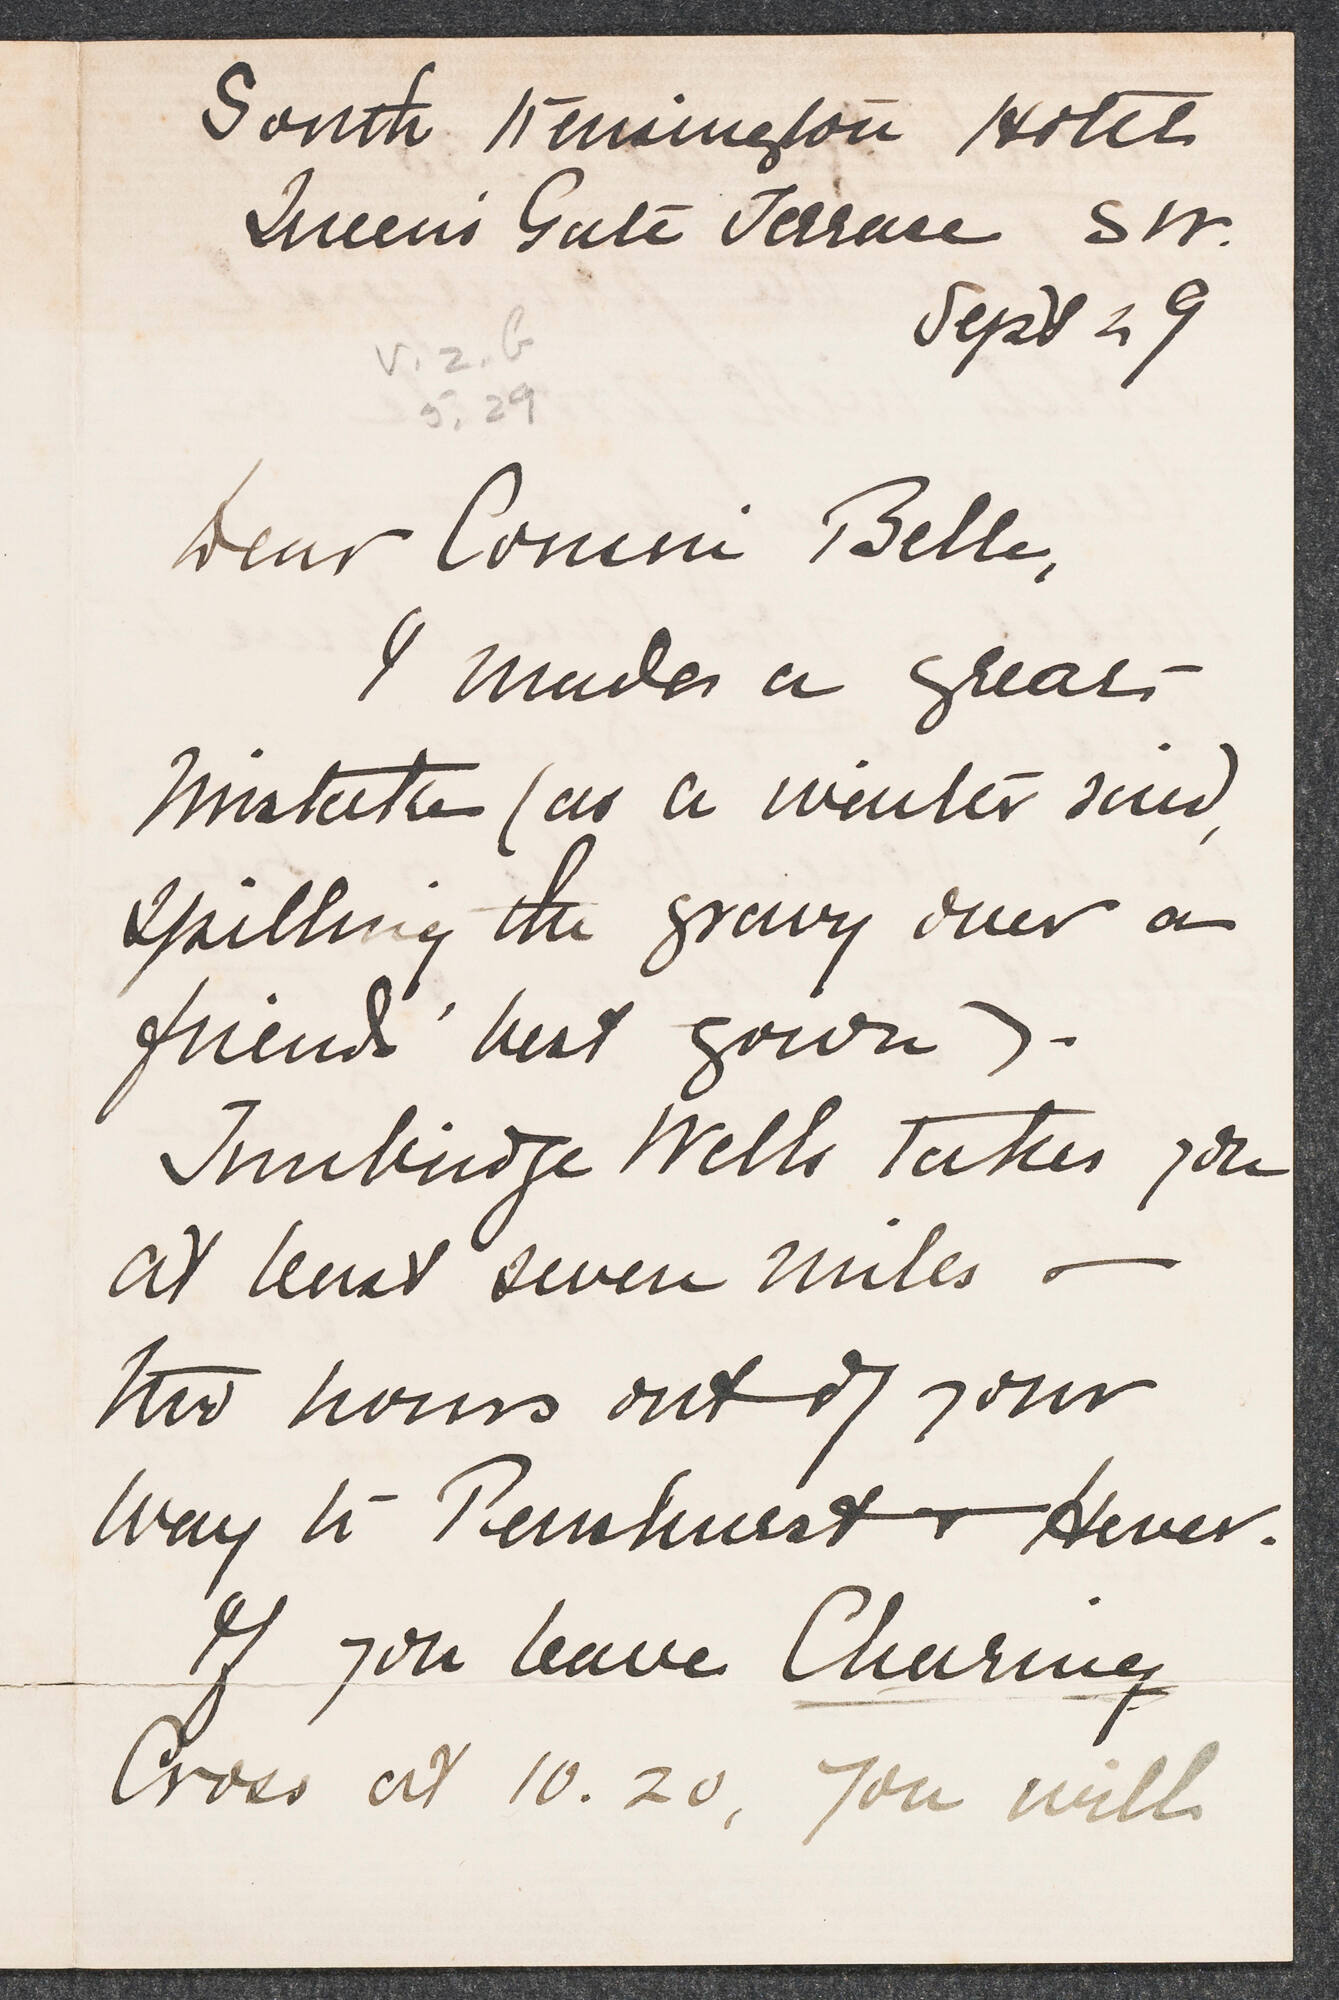 South Kensington Hotel
Queen's Gate Terrace S W.
Sept 29
V. 2. 6
5. 29
Dear Cousin Belle,
I made a great
mistake (as a waiter said,
spilling the gravy over a
friends' best gown) -
Tunbridge Wells takes you
at least seven miles —
two hours out of your
way to Penshurst & Hever.
If you leave Charing
Cross at 10.20, you will